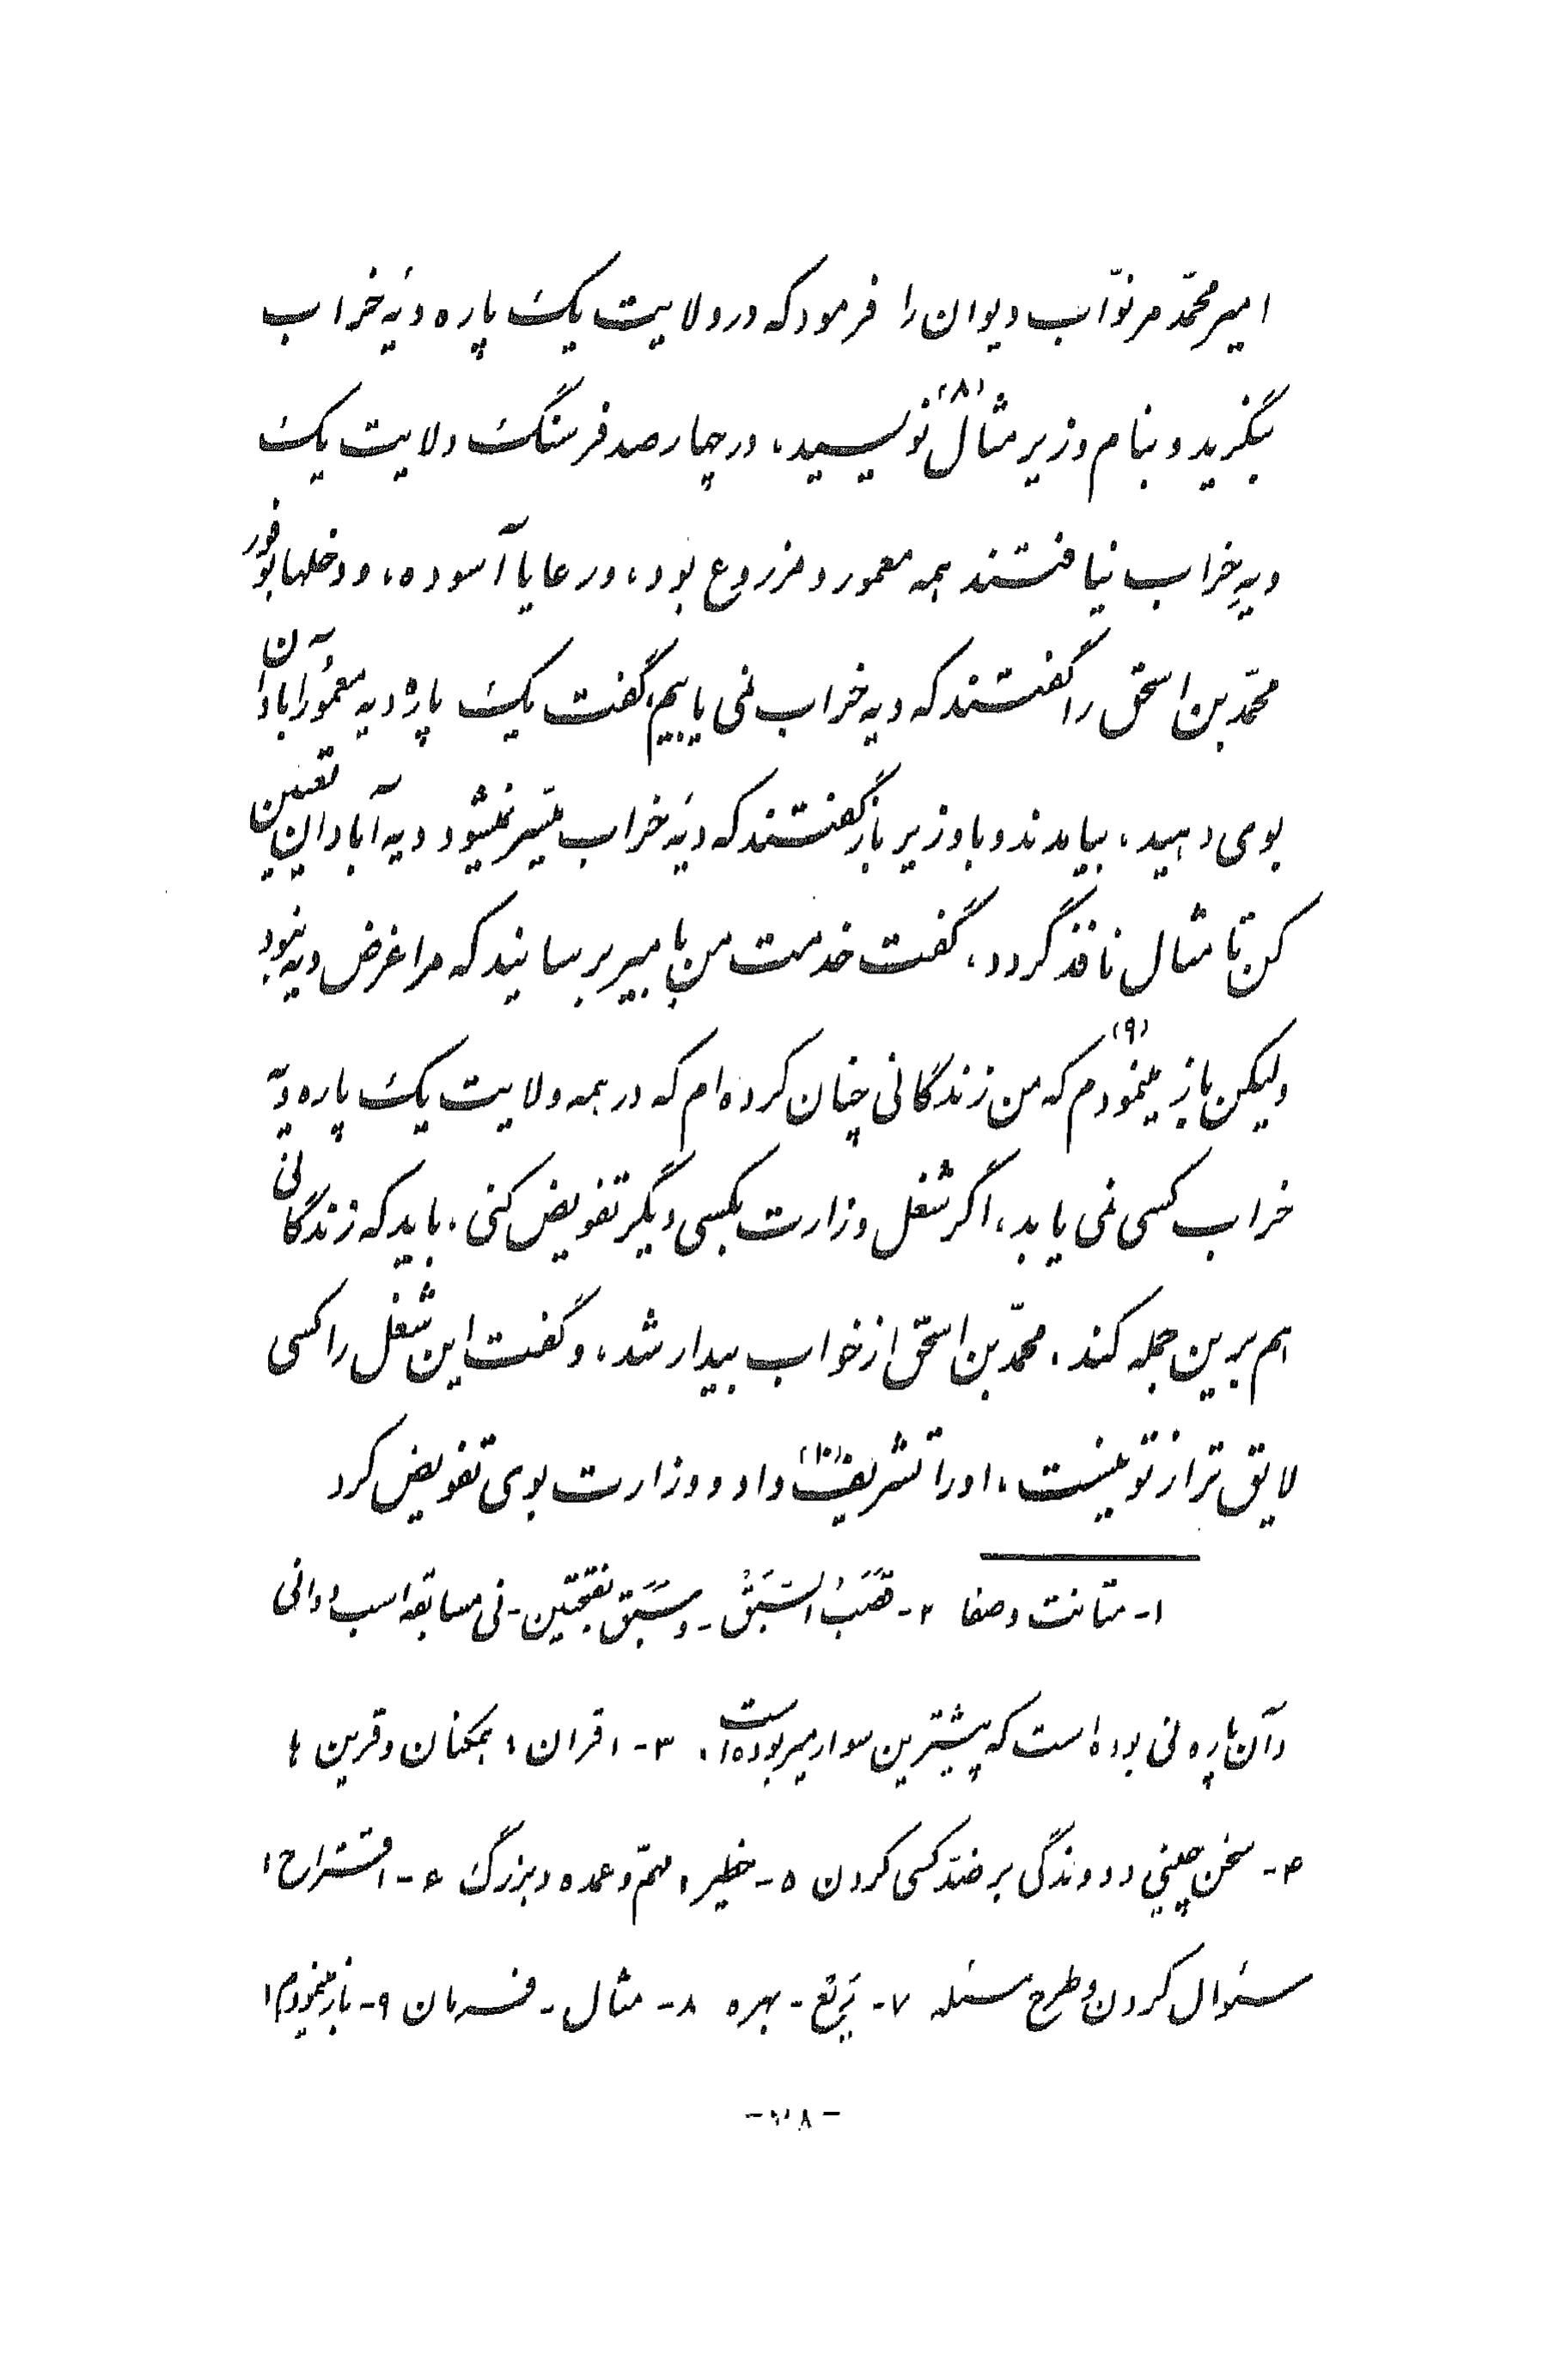 امیر محمّد مر نوّاب دیوان را فرمود که در ولایت یک پاره دیه خراب
بگیرید و بنام وزیر مثال (۸) نویسید، در چهار صد فرسنگ ولایت یک
دیهِ خراب نیافتند همه معمور و مزروع بود، و رعایا آسوده، و دخلها بوفور
محمّد بن اسحق را گفتند که دیه خراب نمی یابیم، گفت یک پارهٔ دیه معمور آبادان
بوی دهید، بیامدند و با وزیر باز گفتند که دیه خراب میّسر نمیشود دیه آبادان تعیین
کن تا مثال نافذ گردد، گفت خدمت من بامیر برسانید که مرا غرض دیه نبود
ولیکن باز مینمودم (۹) که من زندگانی چنان کرده ام که در همه ولایت یک پاره دیه
خراب کسی نمی یابد، اگر شغل وزارت بکسی دیگر تفویض کنی. باید که زندگانی
هم برین جمله کند. محمّد بن اسحّق از خواب بیدار شد، و گفت این شغل را کسی
لایق تر از تو نیست، او را تشریف (۱۰) داد و وزارت بوی تفویض کرد
۱- متانت و صفا ۲- قَصَبُ السَّبَقْ - و سَبَق بفتحتین - نی مسابقه اسب دوانی
و آن پاره نی بوده است که پیشترین سوار میربوده است. ۳- اقران ، همکنان و قرین ها
۴- سخن چینی و دوندگی بر ضدّ کسی کردن ۵- خطیر ، مهمّ و عمده و بزرگ ۶- اقتراح ،
سئوال کردن و طرح مسئله ۷- یَرتع - بهره ۸- مثال - فرمان ۹- باز مینمودم ،
-۲۸-